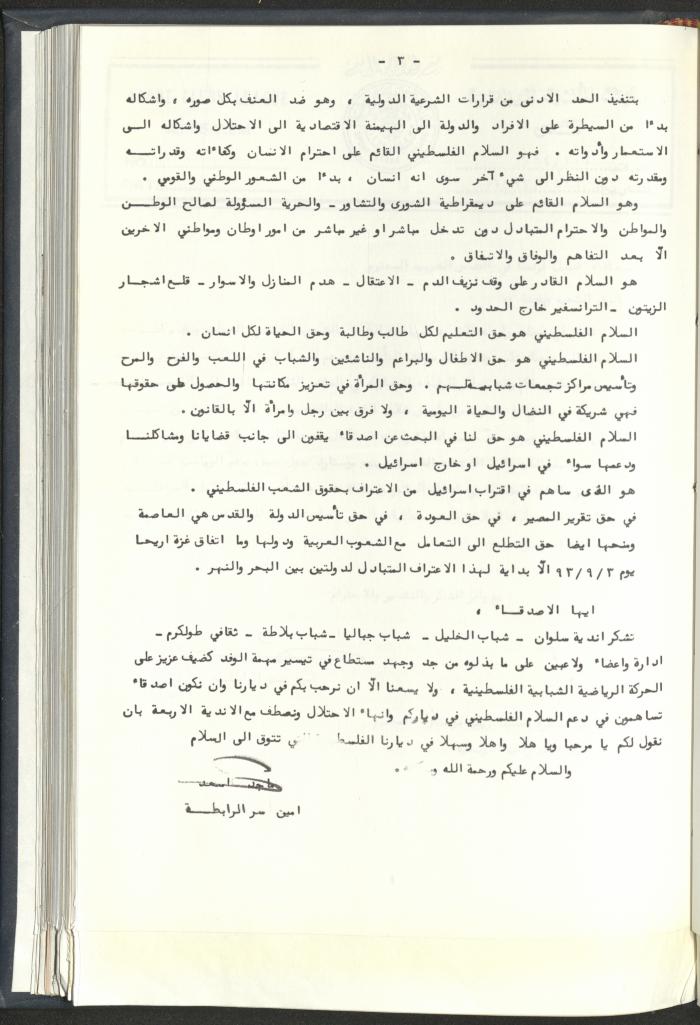 - ٣ -
بتنفيذ الحد الادنى من قرارات الشرعية الدولية ، وهو ضد العنف بكل صوره ، واشكاله
بدءًا من السيطرة على الافراد والدولة الى الهيمنة الاقتصادية الى الاحتلال واشكاله الى
الاستعمار وأدواته . فهو السلام الفلسطيني القائم على احترام الانسان وكفاءاته وقدراته
ومقدرته دون النظر الى شيء آخر سوى انه انسان ، بدءًا من الشعور الوطني والقومي .
وهو السلام القائم على ديمقراطية الشورى والتشاور - والحرية المسؤولة لصالح الوطن
والمواطن والاحترام المتبادل دون تدخل مباشر او غير مباشر من امور اوطان ومواطني الاخرين
الّا بعد التفاهم والوفاق والاتفاق .
هو السلام القادر على وقف نزيف الدم - الاعتقال - هدم المنازل والاسوار - قلع اشجار
الزيتون - الترانسفير خارج الحدود .
السلام الفلسطيني هو حق التعليم لكل طالب وطالبة وحق الحياة لكل انسان .
السلام الفلسطيني هو حق الاطفال والبراعم والناشئين والشباب في اللعب والفرح والمرح
وتأسيس مراكز تجمعات شبابية لهم . وحق المرأة في تعزيز مكانتها والحصول على حقوقها
فهي شريكة في النضال والحياة اليومية ، ولا فرق بين رجل وامرأة الّا بالقانون .
السلام الفلسطيني هو حق لنا في البحث عن اصدقاء يقفون الى جانب قضايانا ومشاكلنا
ودعمها سواء في اسرائيل او خارج اسرائيل .
هو الذى ساهم في اقتراب اسرائيل من الاعتراف بحقوق الشعب الفلسطيني .
في حق تقرير المصير ، في حق العودة ، في حق تأسيس الدولة والقدس هي العاصمة
ومنحها ايضا حق التطلع الى التعامل مع الشعوب العربية ودولها وما اتفاق غزة اريحا
يوم ٩٣/٩/٣ الّا بداية لهذا الاعتراف المتبادل لدولتين بين البحر والنهر .
ايها الاصدقاء ،
نشكر اندية سلوان - شباب الخليل - شباب جباليا - شباب بلاطة - ثقافي طولكرم -
ادارة واعضاء ولاعبين على ما بذلوه من جد وجهد مستطاع في تيسير مهمة الوفد كضيف عزيز على
الحركة الرياضية الشبابية الفلسطينية ، ولا يسعنا الّا ان نرحب بكم في ديارنا وان نكون اصدقاء
تساهمون في دعم السلام الفلسطيني في دياركم وانهاء الاحتلال ونصطف مع الاندية الاربعة بان
نقول لكم يا مرحبا ويا هلا واهلا وسهلا في ديارنا تتوق الى السلام
والسلام عليكم ورحمة الله
ماجد اسعد
امين سر الرابطة